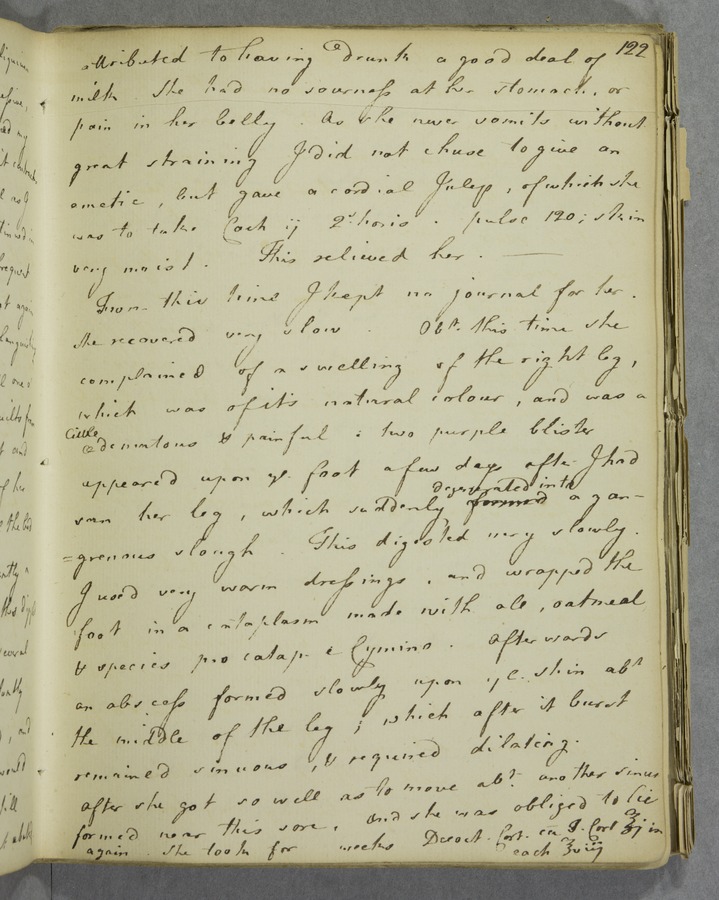 122
attributed to having drunk a good deal of
milk. She had no sourness at her stomach, or
pain in her belly. As she never vomits without
great straining I did not chuse to give an
emetic, but gave a cordial Julep, of which she
was to take Coch ij 2.is horis. pulse 120; skin
very moist. This relieved her. —
From this time I kept no journal for her.
She recovered very slow. Abt. this time she
complained of a swelling of the right leg,
which was of its natural colour, and was a
little
œdematous & painful: two purple blisters
appeared upon ye. foot a few days after I had
degenerated into
seen her leg, which suddenly formed a gan-
=grenous slough. This digested very slowly.
I used very warm dressings, and wrapped the
foot in a cataplasm made with ale, oatmeal
& species pro catap. e Cymino. Afterwards
an abscess formed slowly upon ye. skin abt
the middle of the leg; which after it burst
remained sinuous, & required dilating.
after she got so well as to move abt. another sinus
formed near this sore, and she was obliged to lie
again. She took for weeks Decoct. Cort. cu
each